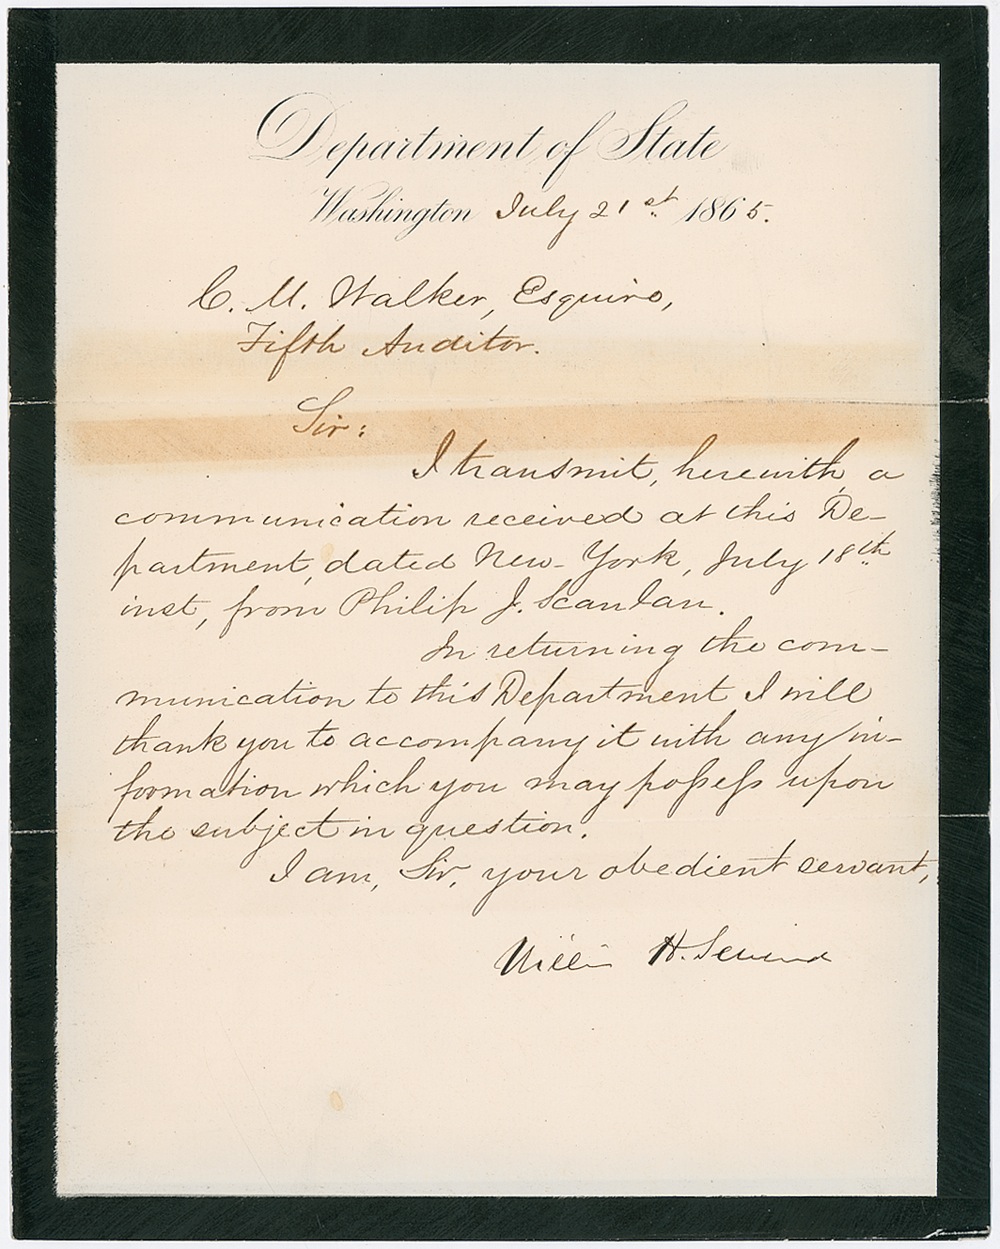 Department of State
Washington July 21st. 1865.
C. M. Walker, Esquire,
Fifth Auditor.
Sir:
I transmit, herewith, a
communication received at this De-
partment, dated New-York, July 18th
inst, from Philip J. Scanlan.
In returning the com-
munication to this Department I will
thank you to accompany it with any in-
formation which you may possess upon
the subject in question.
I am, Sir, your obedient servant,
William H. Seward